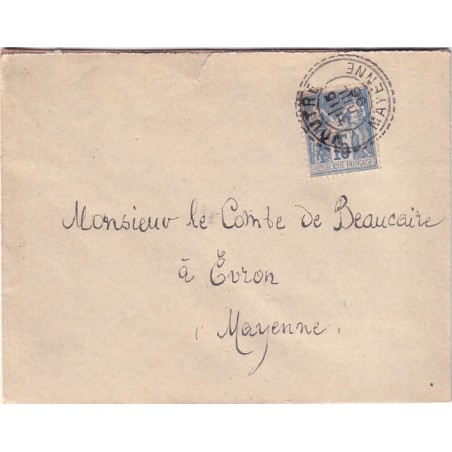 MAYENNE
15
REPUBLIQUE FRANÇAISE
Monsieur le Comte de Beaucaire
à Evron
Mayenne.